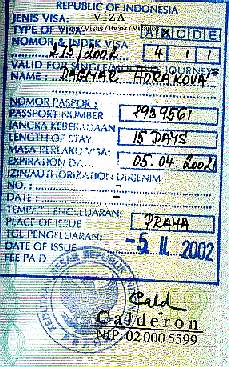 REPUBLIC OF INDONESIA
JENIS VISA: VIZA
TYPE OF VISA A B C D E
NOMOR & INDEX VISA
4 1
VALID FOR SINGLE JOURNEYS
NAME : DAGMAR HORAKOVA
NOMOR PASPOR :
PASSPORT NUMBER
JANGKA KEBERADAAN
LENGTH OF STAY 15 DAYS
MASA BERLAKU VISA:
EXPIRATION DATE 05.04.2002
IZIN/AUTHORIZATION DIGENIM
NO. :
DATE : -
TEMPAT PENGELUARAN:
PLACE OF ISSUE PRAHA
TGL PENGELUARAN:
DATE OF ISSUE -5 II 2002
FEE PAID
REPUBLIK
Calderon
NIP. 020005599